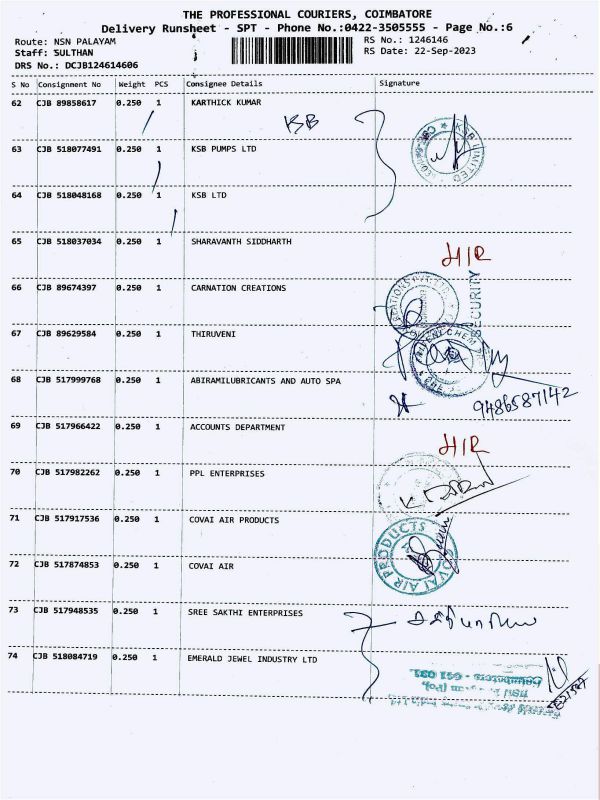 THE PROFESSIONAL COURIERS, COIMBATORE
Delivery Runsheet - SPT - Phone No.:0422-3505555 - Page No.:6
Route: NSN PALAYAM RS No.: 1246146
Staff: SULTHAN RS Date: 22-Sep-2023
DRS No.: DCJB124614606
S No Consignment No Weight PCS Consignee Details Signature
62 CJB 89858617 0.250 1 KARTHICK KUMAR
KSB
KSB LIMITED
63 CJB 518077491 0.250 1 KSB PUMPS LTD
64 CJB 518048168 0.250 1 KSB LTD
65 CJB 518037034 0.250 1 SHARAVANTH SIDDHARTH
HIR
66 CJB 89674397 0.250 1 CARNATION CREATIONS
SECURITY
67 CJB 89629584 0.250 1 THIRUVENI
68 CJB 517999768 0.250 1 ABIRAMILUBRICANTS AND AUTO SPA
9486587142
69 CJB 517966422 0.250 1 ACCOUNTS DEPARTMENT
HIR
70 CJB 517982262 0.250 1 PPL ENTERPRISES
71 CJB 517917536 0.250 1 COVAI AIR PRODUCTS
COVAI AIR PRODUCTS
72 CJB 517874853 0.250 1 COVAI AIR
73 CJB 517948535 0.250 1 SREE SAKTHI ENTERPRISES
74 CJB 518084719 0.250 1 EMERALD JEWEL INDUSTRY LTD
Coimbatore - 641 031.